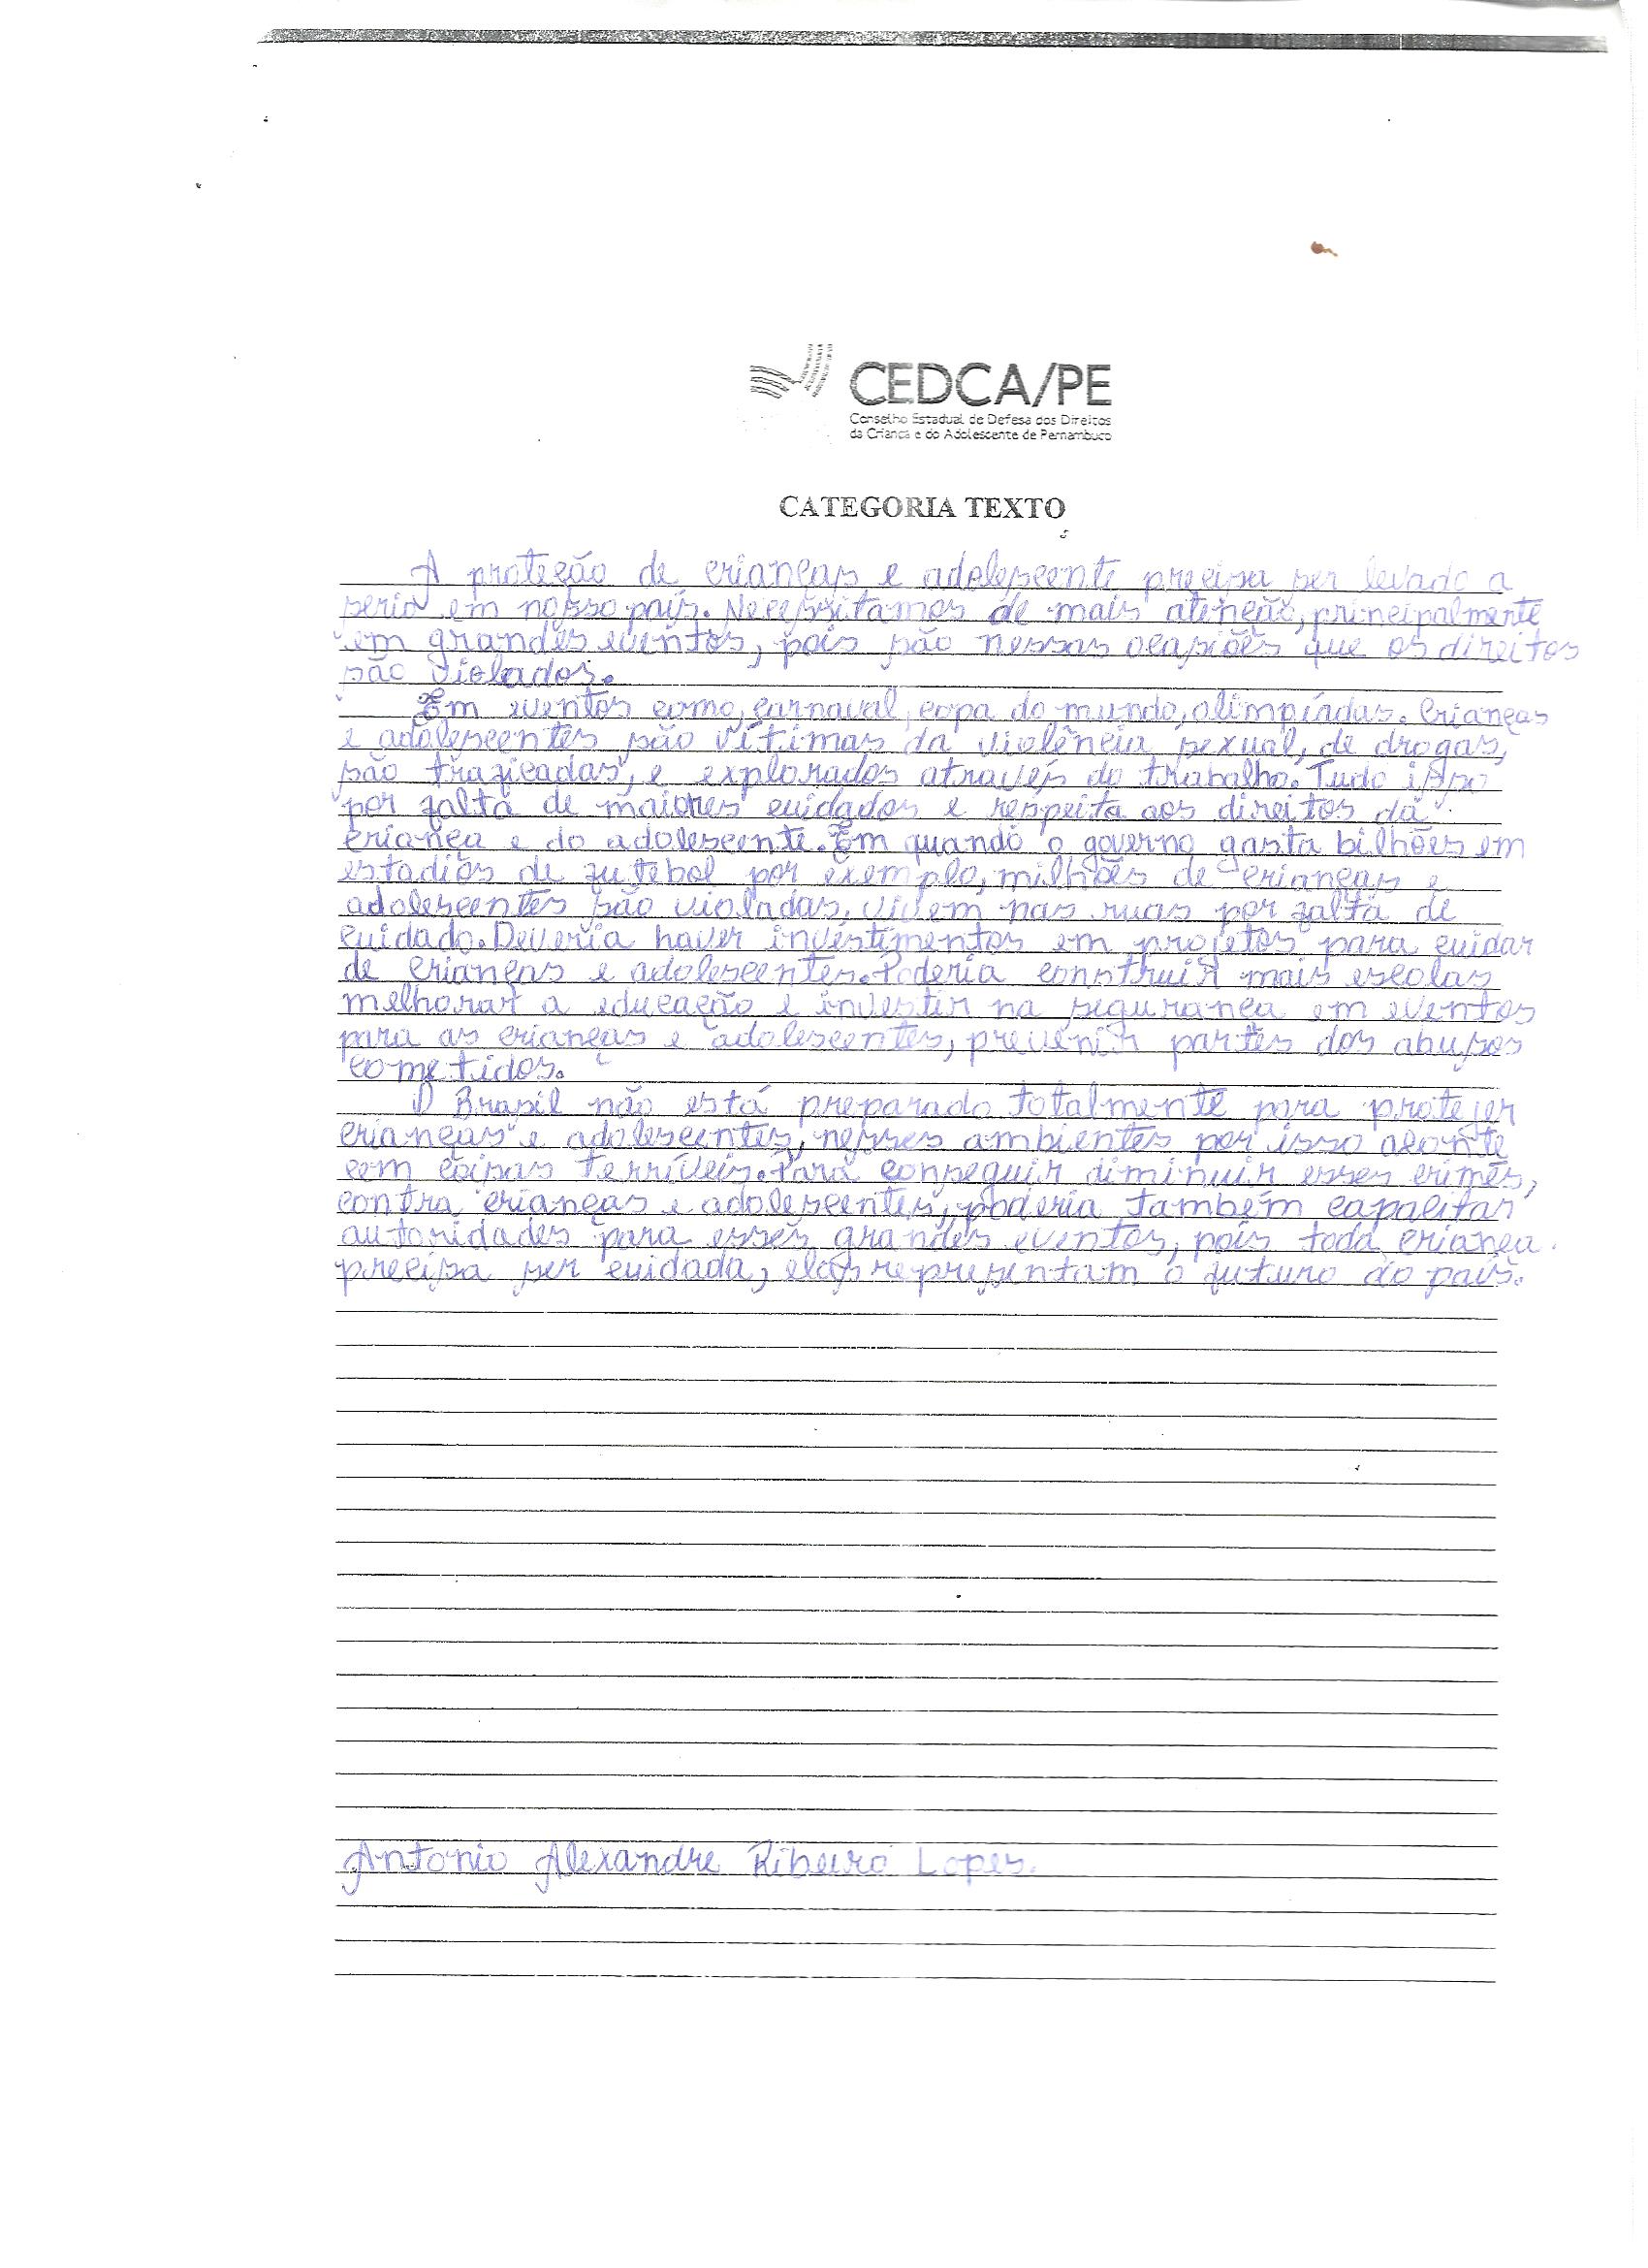 CEDCA/PE
Conselho Estadual de Defesa dos Direitos
da Criança e do Adolescente de Pernambuco
CATEGORIA TEXTO
A proteção de crianças e adolescente precisa ser levado a
serio em nosso país. Necessitamos de mais atenção, principalmente
em grandes eventos, pois são nessas ocasiões que os direitos
são violados.
Em eventos como, carnaval, copa do mundo, olimpíadas. Crianças
e adolescentes são vítimas da violência sexual, de drogas,
são traficadas, e explorados através do trabalho. Tudo isso
por falta de maiores cuidados e respeita aos direitos da
criança e do adolescente. Em quando o governo gasta bilhões em
estadios de futebol por exemplo, milhões de crianças e
adolescentes são violadas, vivem nas ruas por falta de
cuidado. Deveria haver investimentos em projetos para cuidar
de crianças e adolescentes. Poderia construir mais escolas
melhorar a educação e investir na segurança em eventos
para as crianças e adolescentes, prevenir partes dos abusos
cometidos.
O Brasil não está preparado totalmente para proteger
crianças e adolescentes, nesses ambientes por isso aconte
cem coisas terríveis. Para conseguir diminuir esses crimes,
contra crianças e adolescentes, poderia também capacitar
autoridades para esses grandes eventos, pois toda criança
precisa ser cuidada, elas representam o futuro do país.
Antonio Alexandre Ribeiro Lopes.